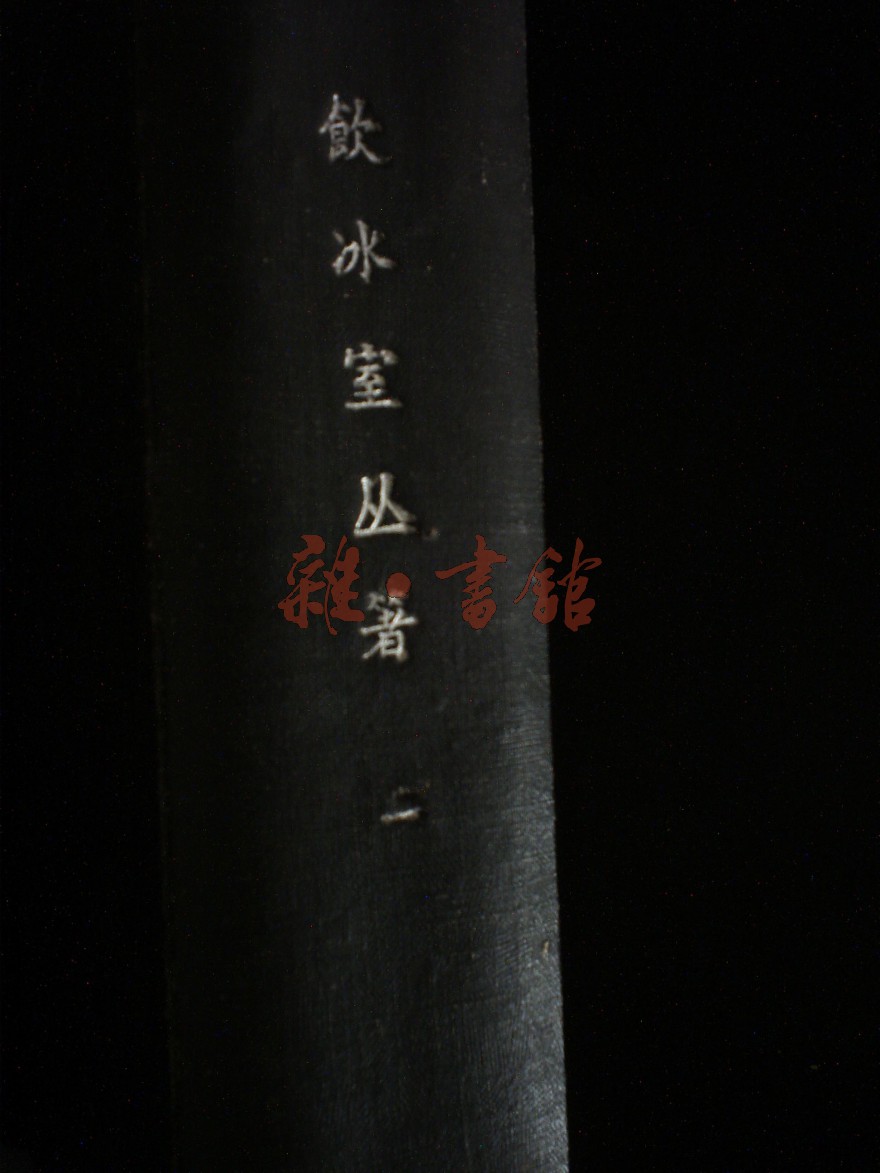 飲冰室丛著 二
雜·書館